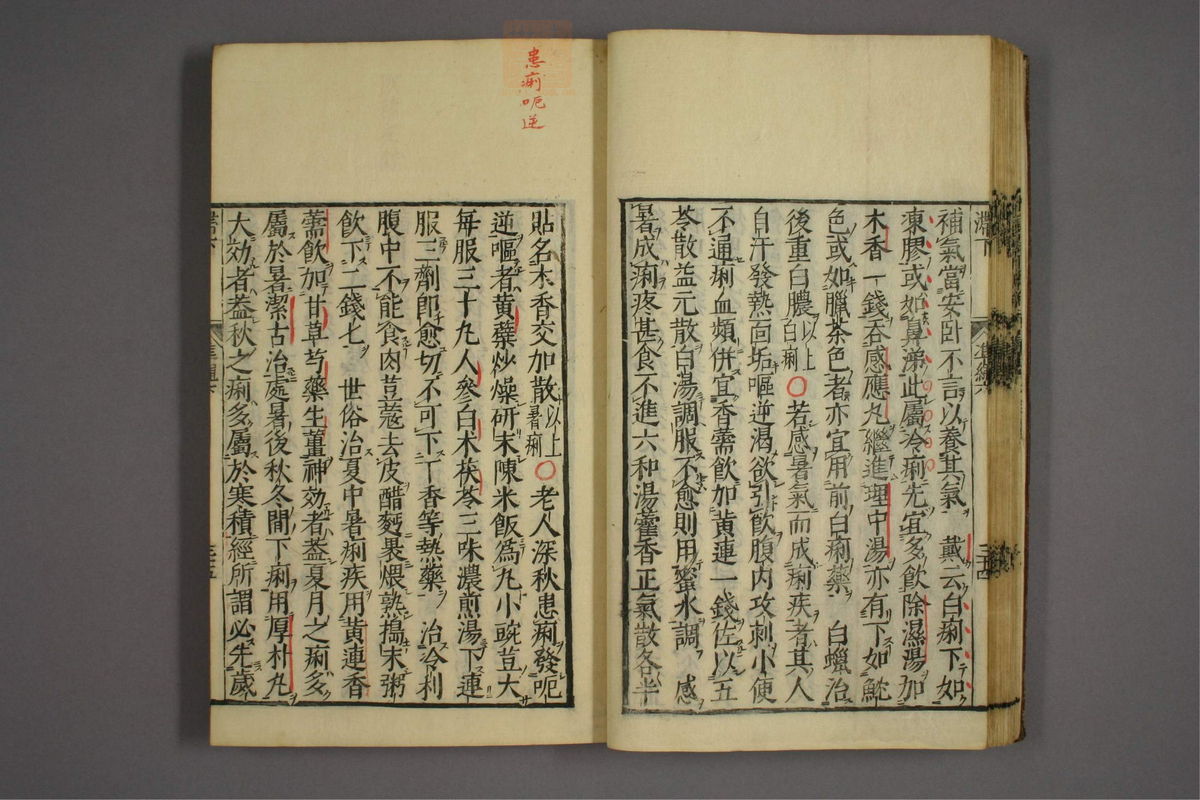 補氣當安卧不言以養其氣　戴云白痢下如
凍膠或如鼻涕此屬冷痢先宜多飲除濕湯加
木香一錢吞感應丸繼進理中湯亦有下如魷
色或如臘茶色者亦宜用前白痢藥　白蠟治
後重白膿以上白痢〇若感暑氣而成痢疾者其人
自汗發熱面垢嘔逆渴欲引飲腹内攻刺小便
不通痢血頻併宜香薷飲加黄連一錢佐以五
苓散益元散白湯調服不愈則用蜜水調　感
暑成痢疼甚食不進六和湯藿香正氣散各半
患痢呃逆
貼名木香交加散以上暑痢〇老人深秋患痢發呃
逆嘔者黄蘗炒燥研末陳米飯爲丸小豌豆大
每服三十丸人參白朮茯苓三味濃煎湯下連
服三劑即愈切不可下丁香等熱藥　治冷利
腹中不能食肉荳蔻去皮醋麪裹煨熟搗末粥
飲下二錢七　世俗治夏中暑痢疾用黄連香
薷飲加甘草芍藥生薑神効者蓋夏月之痢多
屬於暑潔古治處暑後秋冬間下痢用厚朴丸
大効者蓋秋之痢多屬於寒積經所謂必先歲